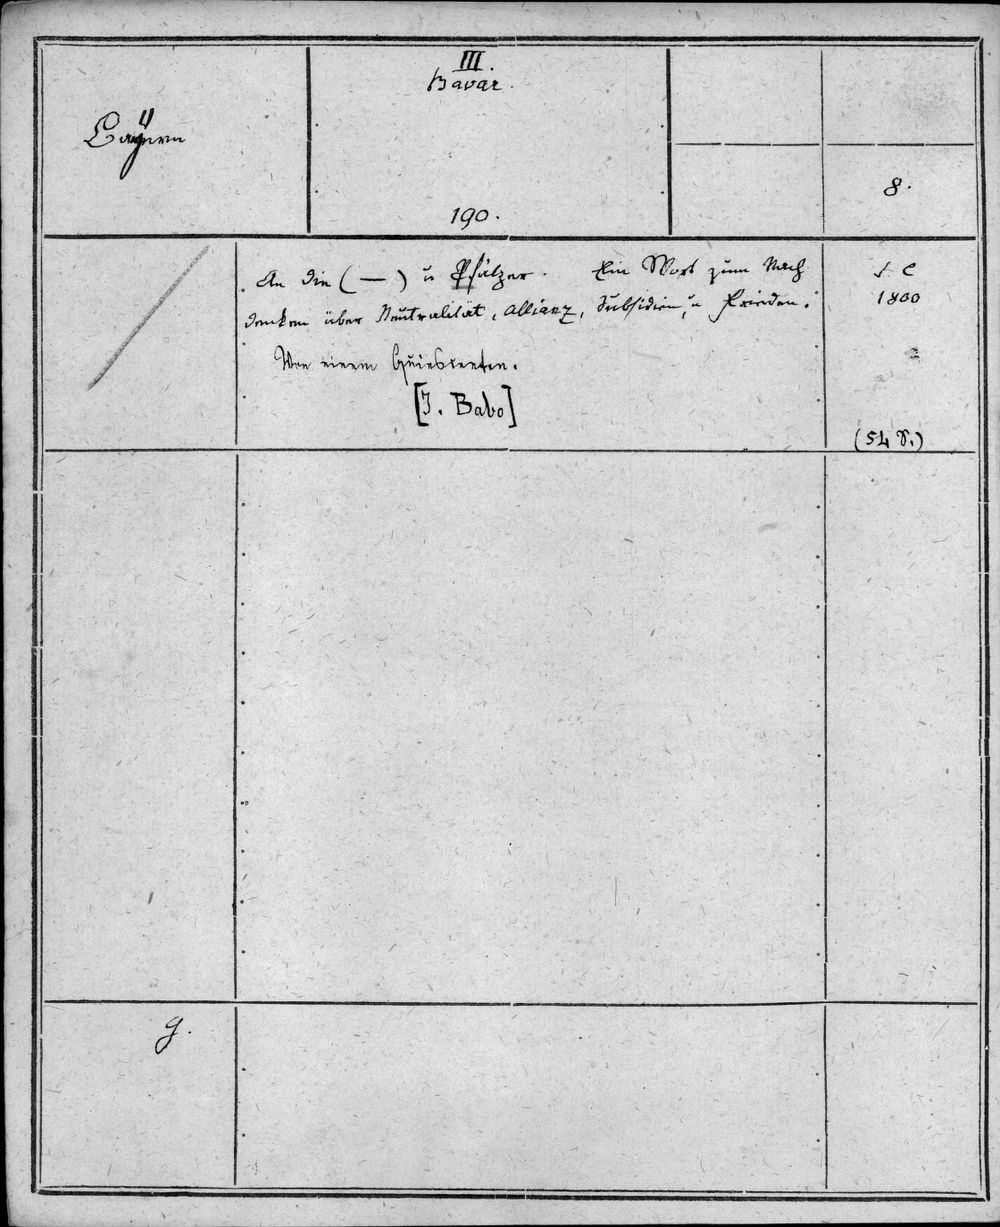 Bayern
III.
Bavar.
190.
8.
An die (—) u Pfälzer. Ein Wort zum Nach
denken über Neutralität, Allianz, Subsidien, u Frieden.
Von einem Quiescenten.
[J. Babo]
s. l.
1800
(54 S.)
g.